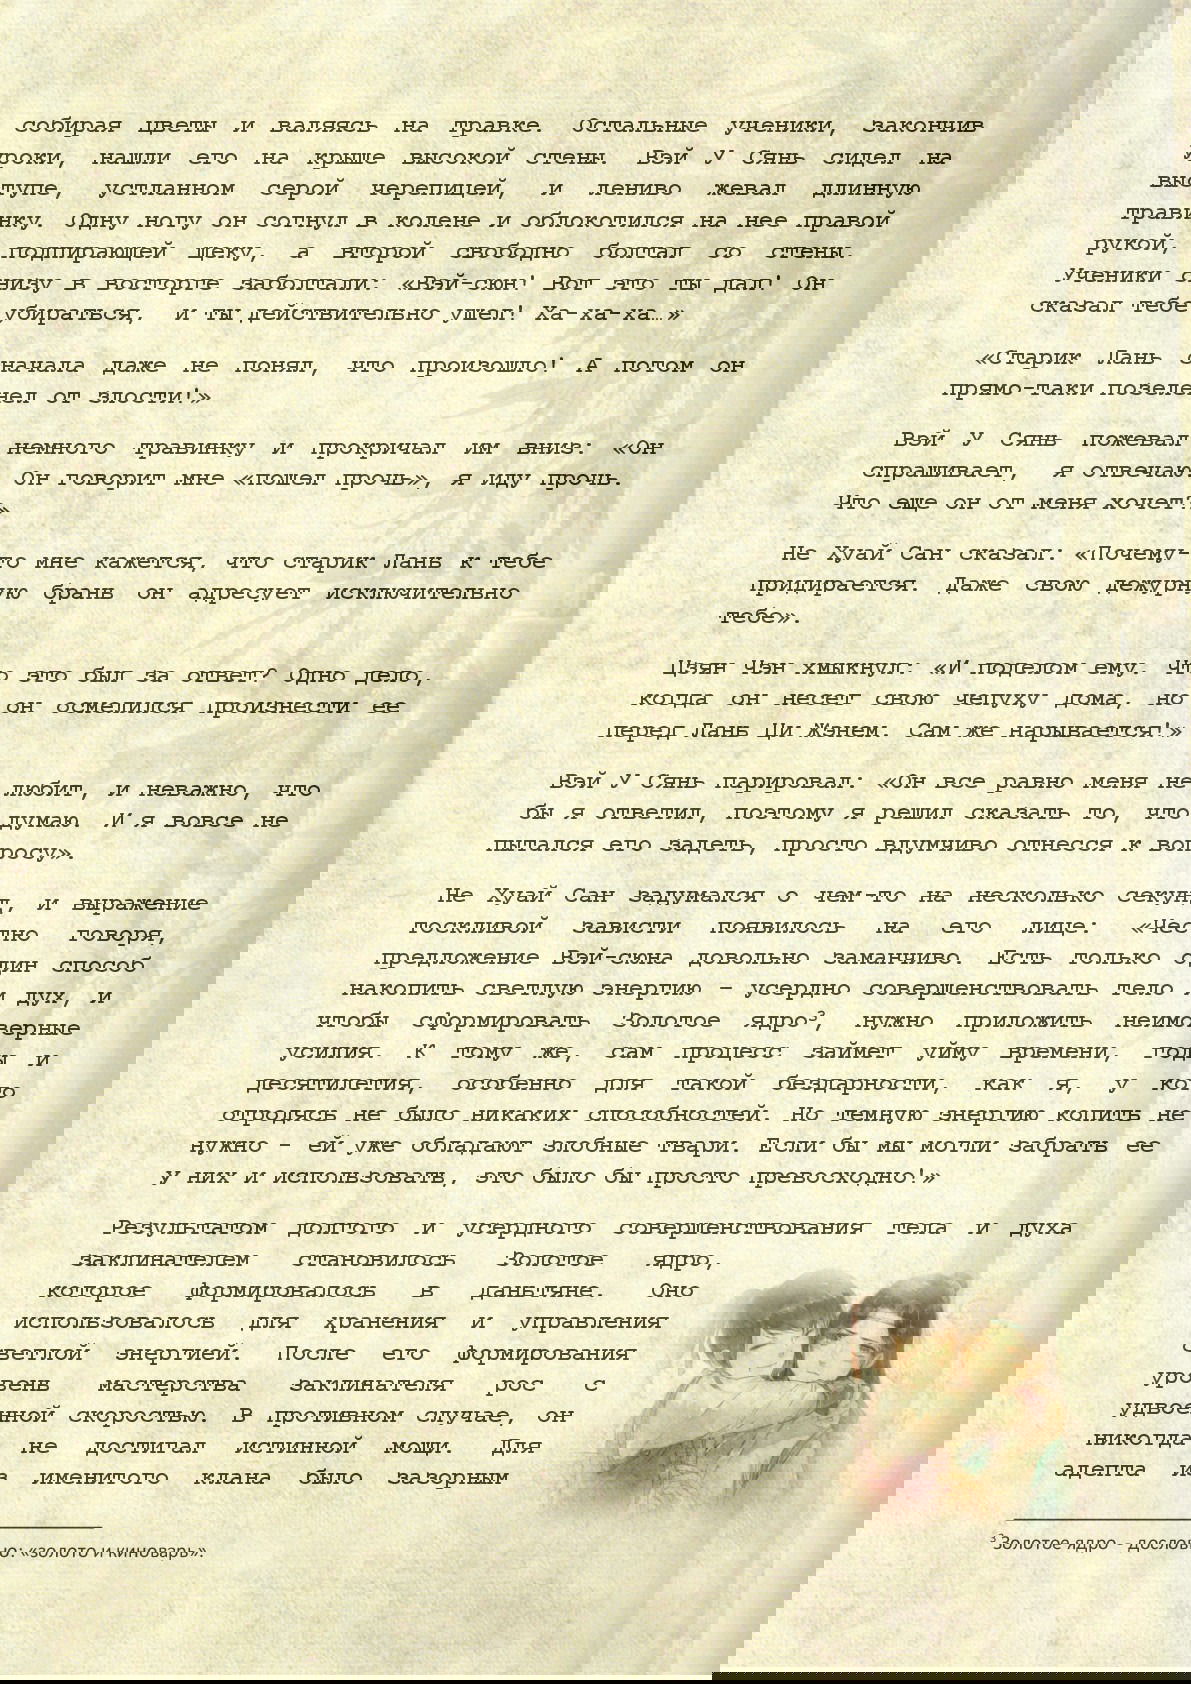 собирая цветы и валяясь на травке. Остальные ученики, закончив
уроки, нашли его на крыше высокой стены. Вэй У Сянь сидел на
выступе, устланном серой черепицей, и лениво жевал длинную
травинку. Одну ногу он согнул в колене и облокотился на нее правой
рукой, подпирающей щеку, а второй свободно болтал со стены.
Ученики снизу в восторге заболтали: «Вэй-сюн! Вот это ты дал! Он
сказал тебе убираться, и ты действительно ушел! Ха-ха-ха…»
«Старик Лань сначала даже не понял, что произошло! А потом он
прямо-таки позеленел от злости!»
Вэй У Сянь пожевал немного травинку и прокричал им вниз: «Он
спрашивает, я отвечаю. Он говорит мне «пошел прочь», я иду прочь.
Что еще он от меня хочет?»
Не Хуай Сан сказал: «Почему-то мне кажется, что старик Лань к тебе
придирается. Даже свою дежурную брань он адресует исключительно
тебе».
Цзян Чэн хмыкнул: «И поделом ему. Что это был за ответ? Одно дело,
когда он несет свою чепуху дома, но он осмелился произнести ее
перед Лань Ци Жэнем. Сам же нарывается!»
Вэй У Сянь парировал: «Он все равно меня не любит, и неважно, что
бы я ответил, поэтому я решил сказать то, что думаю. И я вовсе не
пытался его задеть, просто вдумчиво отнесся к вопросу».
Не Хуай Сан задумался о чем-то на несколько секунд, и выражение
тоскливой зависти появилось на его лице: «Честно говоря,
предложение Вэй-сюна довольно заманчиво. Есть только один способ
накопить светлую энергию – усердно совершенствовать тело и дух, и
чтобы сформировать Золотое ядро³, нужно приложить неимоверные
усилия. К тому же, сам процесс займет уйму времени, годы и
десятилетия, особенно для такой бездарности, как я, у кого
отродясь не было никаких способностей. Но темную энергию копить не
нужно – ей уже обладают злобные твари. Если бы мы могли забрать ее
у них и использовать, это было бы просто превосходно!»
Результатом долгого и усердного совершенствования тела и духа
заклинателем становилось Золотое ядро,
которое формировалось в даньтяне. Оно
использовалось для хранения и управления
светлой энергией. После его формирования
уровень мастерства заклинателя рос с
удвоенной скоростью. В противном случае, он
никогда не достигал истинной мощи. Для
адепта из именитого клана было зазорным
³Золотое ядро – дословно: «золото и киноварь».